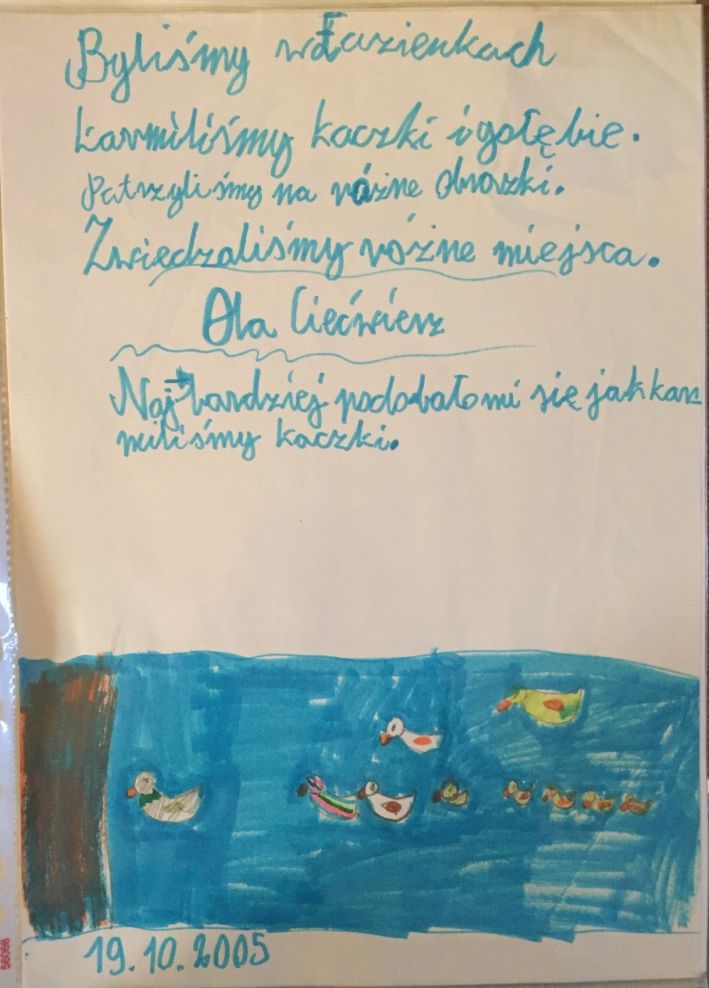 Byliśmy w Łazienkach
karmiliśmy kaczki i gołębie.
Patrzyliśmy na różne obrazki.
Zwiedzaliśmy różne miejsca.
Ola Ciećwierz
Najbardziej podobało mi się jak kar
miliśmy kaczki.
19.10.2005